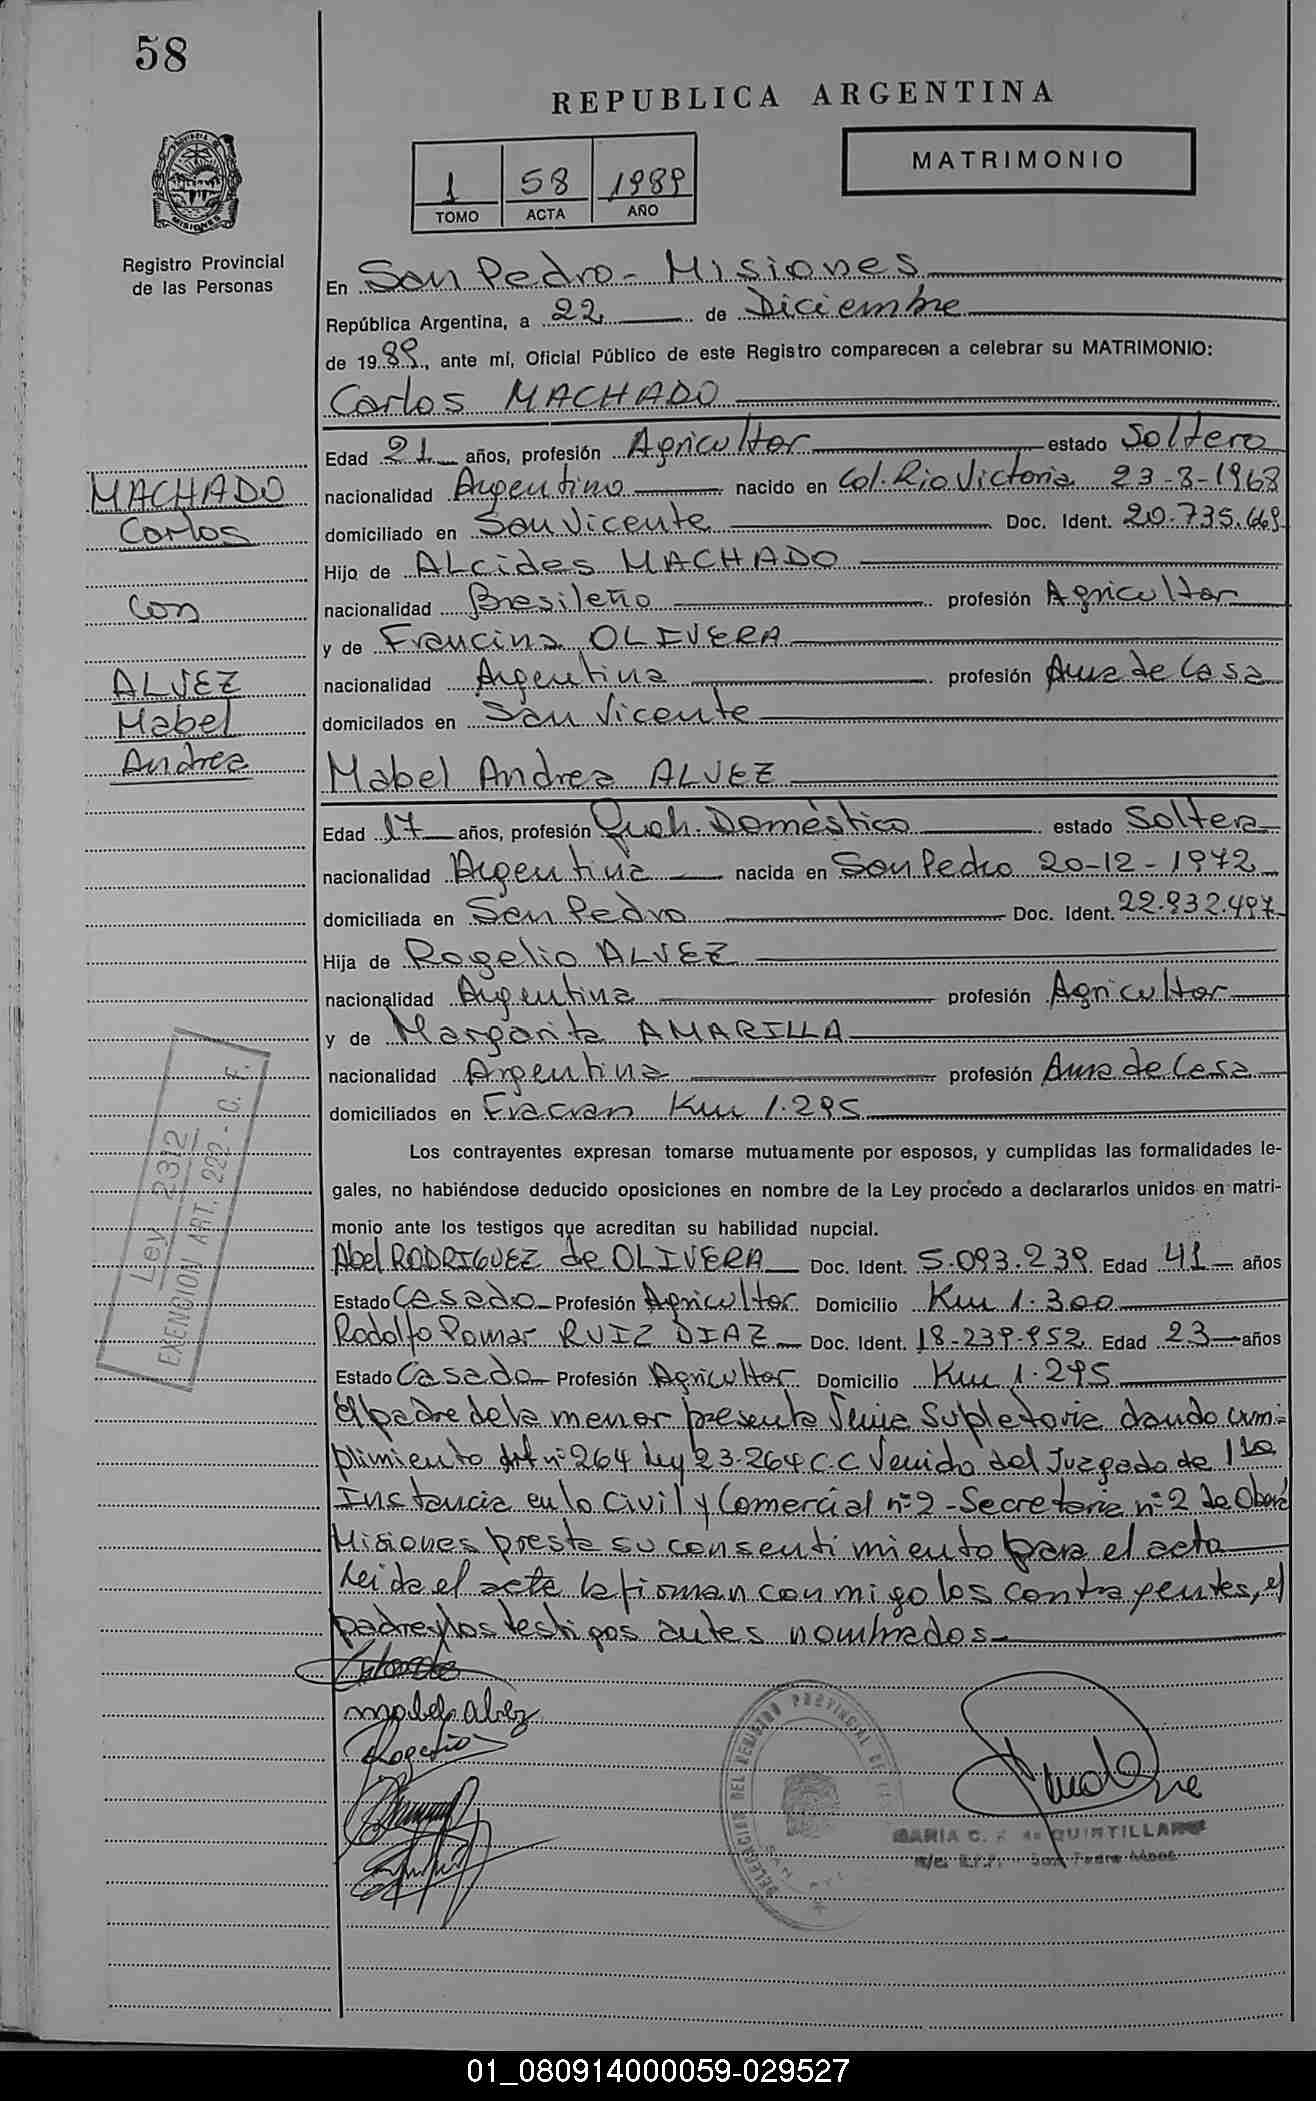 58
REPUBLICA ARGENTINA
MATRIMONIO
1 58 1989
TOMO ACTA AÑO
MISIONES
Registro Provincial
de las Personas
En San Pedro - Misiones
República Argentina, a 22 de Diciembre
de 1989, ante mí, Oficial Público de este Registro comparecen a celebrar su MATRIMONIO:
Carlos MACHADO
Edad 21 años, profesión Agricultor estado Soltero
nacionalidad Argentino nacido en Col. Rio Victoria 23-8-1968
domiciliado en San Vicente Doc. Ident. 20.735.669
Hijo de ALcides MACHADO
nacionalidad Brasileño profesión Agricultor
y de Francina OLIVERA
nacionalidad Argentina profesión Ama de Casa
domicilados en San Vicente
MACHADO
Carlos
Con
ALVEZ
Mabel
Andrea
Mabel Andrea ALVEZ
Edad 17 años, profesión Queh. Doméstico estado Soltera
nacionalidad Argentina nacida en San Pedro 20-12-1972
domiciliada en San Pedro Doc. Ident. 22.932.497
Hija de Rogelio ALVEZ
nacionalidad Argentina profesión Agricultor
y de Margarita AMARILLA
nacionalidad Argentina profesión Ama de Casa
domiciliados en Fracran Km 1.295
Ley 2312
EXENCION ART. 222 - C. F.
Los contrayentes expresan tomarse mutuamente por esposos, y cumplidas las formalidades le-
gales, no habiéndose deducido oposiciones en nombre de la Ley procedo a declararlos unidos en matri-
monio ante los testigos que acreditan su habilidad nupcial.
Abel RODRIGUEZ de OLIVERA Doc. Ident. 5.093.239 Edad 41 años
Estado Casado Profesión Agricultor Domicilio Km 1.300
Rodolfo Pomar RUIZ DIAZ Doc. Ident. 18-239-952 Edad 23 años
Estado Casado Profesión Agricultor Domicilio Km 1.295
El padre de la menor presenta Venia Supletoria dando cum-
plimiento Art nº 264 Ley 23.264 C.C Venida del Juzgado de 1ra
Instancia en lo Civil y Comercial nº 2 - Secretaria nº 2 de Oberá
Misiones presta su consentimiento para el acto
Leida el acta la firman conmigo los contrayentes, el
padre y los testigos antes nombrados
mabel alvez
Rogelio
DELEGACION DEL REGISTRO PROVINCIAL DE
SAN
MARIA C. de QUINTILLAN
San Pedro Mnes
01_080914000059-029527